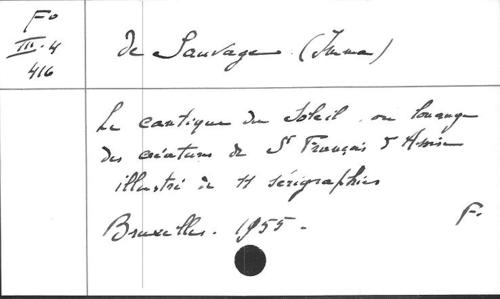 Fo
III. 4
416
de Sauvage (Imma)
Le cantique du Soleil ou louange
des créatures de St François d'Assise
illustré de 11 sérigraphies
Bruxelles. 1955.
F.